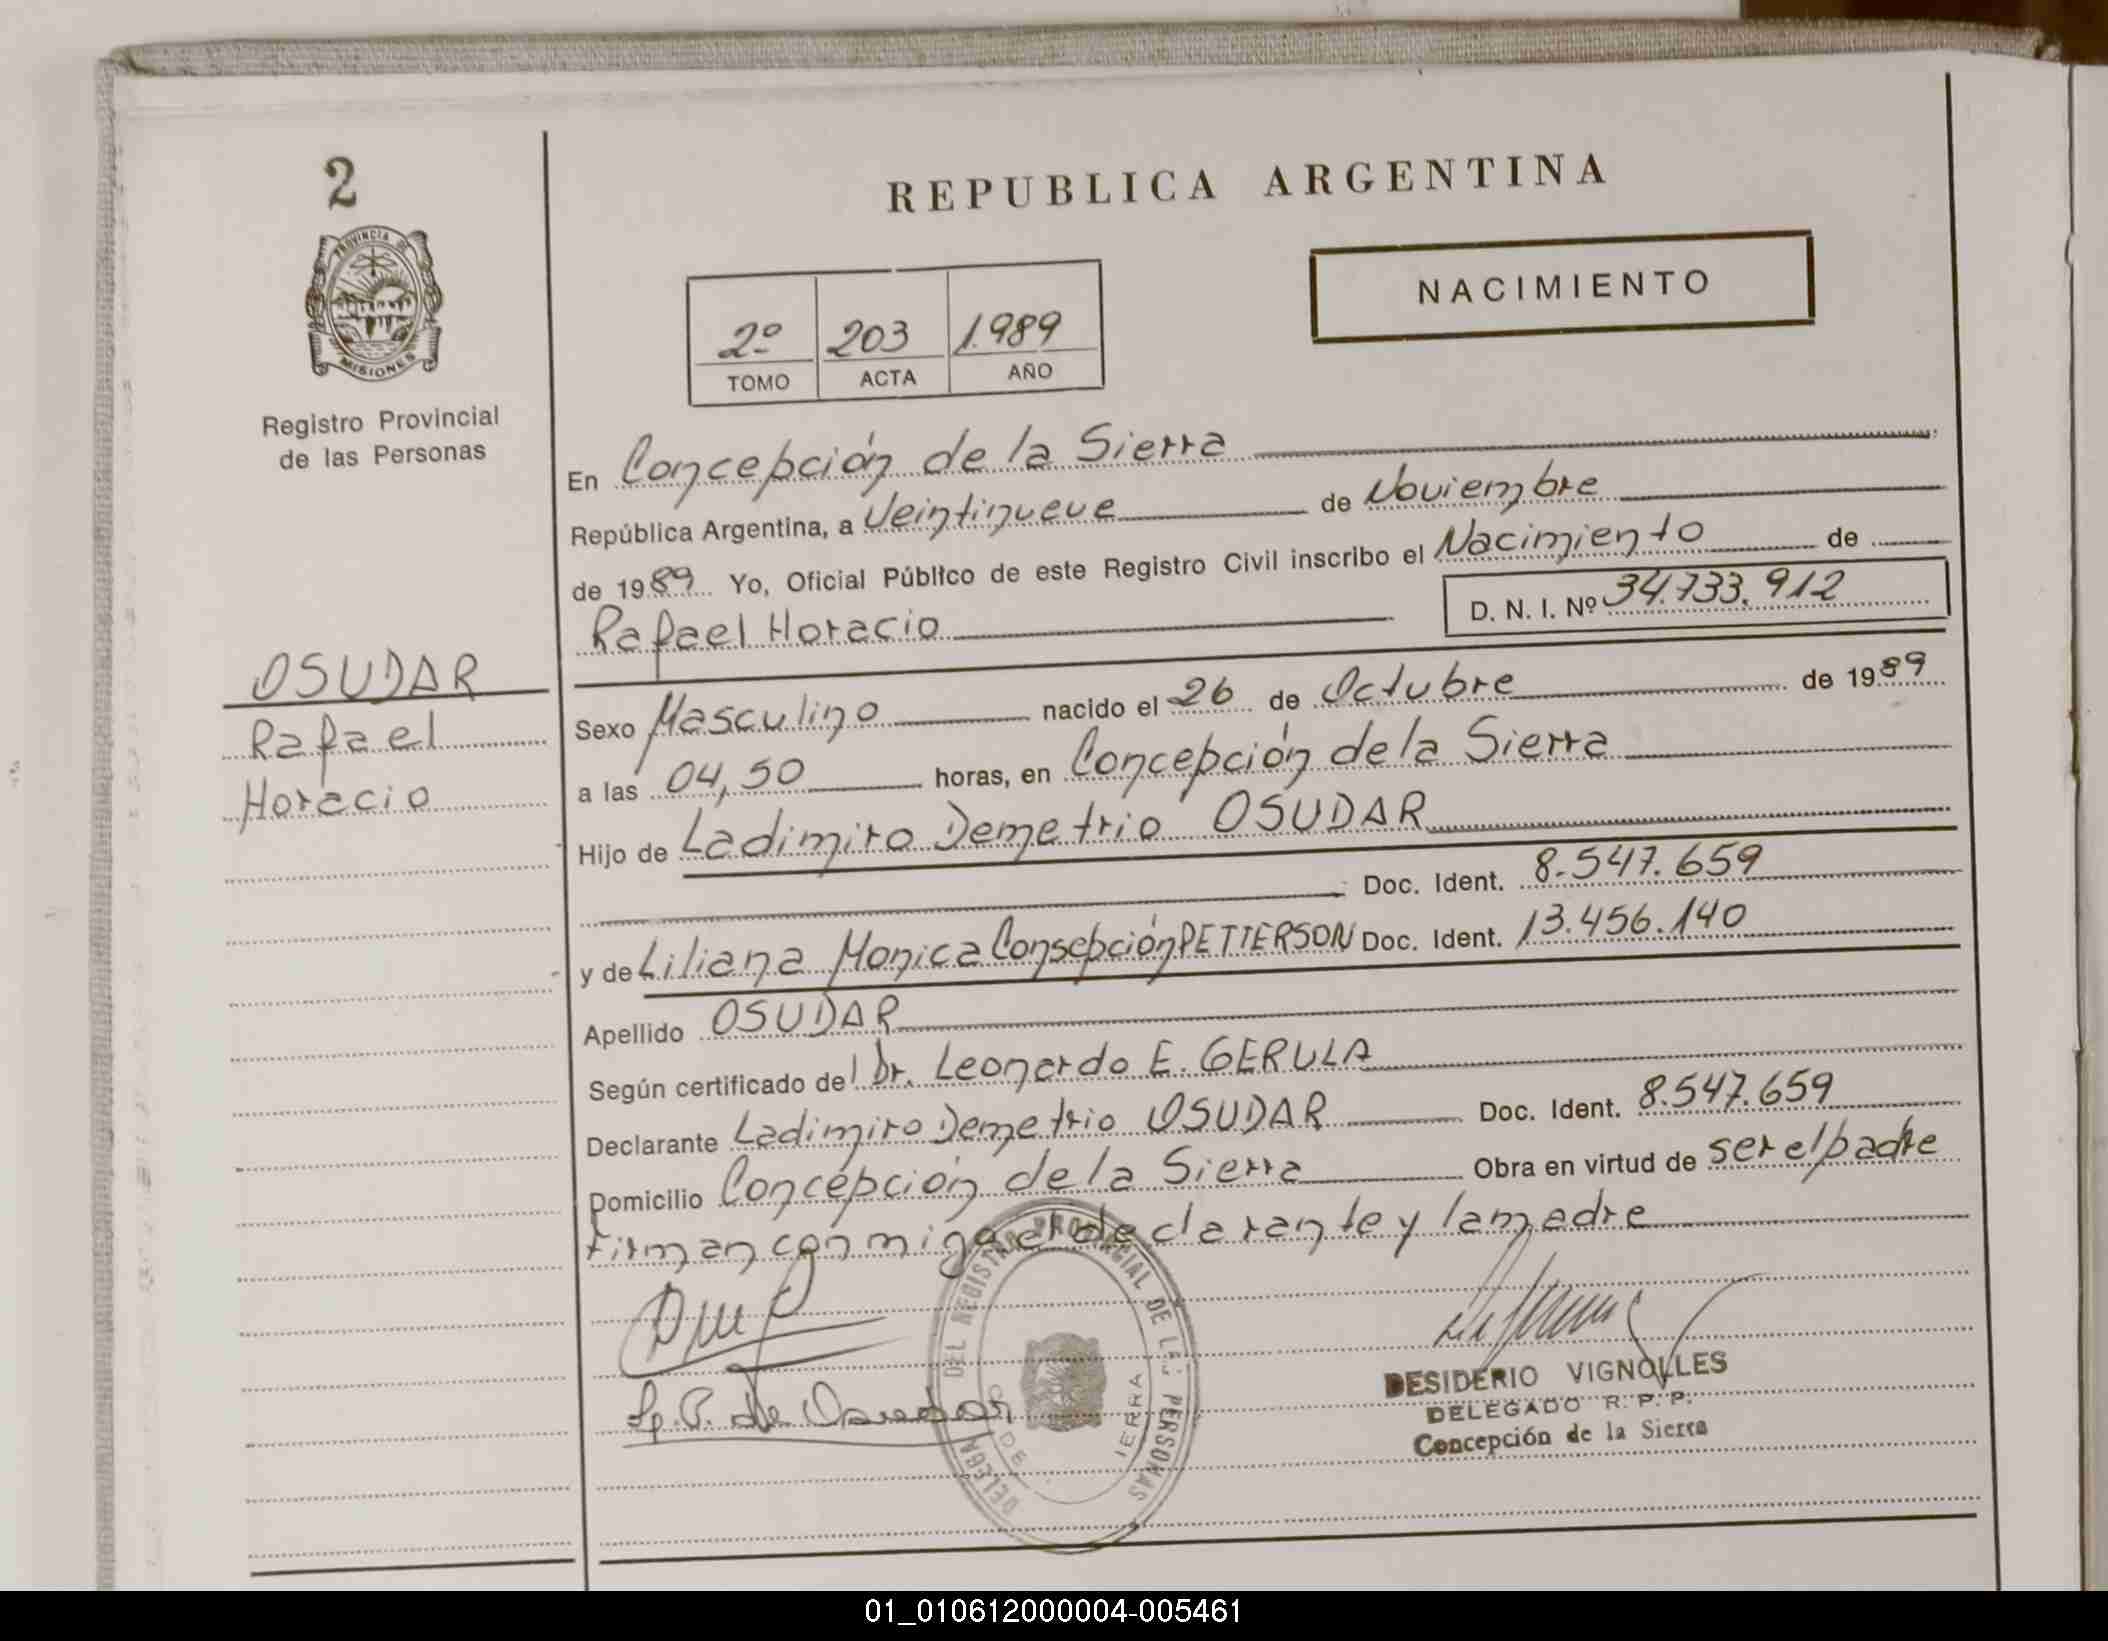 2
PROVINCIA DE
MISIONES
Registro Provincial
de las Personas
OSUDAR
Rafael
Horacio
REPUBLICA ARGENTINA
NACIMIENTO
2º 203 1.989
TOMO ACTA AÑO
En Concepción de la Sierra
República Argentina, a Veintinueve de Noviembre
de 1989 Yo, Oficial Público de este Registro Civil inscribo el Nacimiento de
Rafael Horacio D. N. I. Nº 34.733.912
Sexo Masculino nacido el 26 de Octubre de 1989
a las 04,50 horas, en Concepción de la Sierra
Hijo de Ladimiro Demetrio OSUDAR
Doc. Ident. 8.547.659
y de Liliana Monica Consepción PETTERSON Doc. Ident. 13.456.140
Apellido OSUDAR
Según certificado del Dr. Leonardo E. GERULA
Declarante Ladimiro Demetrio OSUDAR Doc. Ident. 8.547.659
Domicilio Concepción de la Sierra Obra en virtud de ser el padre
Firman conmigo el declarante y la madre
DEL REGISTRO PROVINCIAL DE LAS PERSONAS
DE
IERRA
DESIDERIO VIGNOLLES
DELEGADO R. P. P.
Concepción de la Sierra
01_010612000004-005461